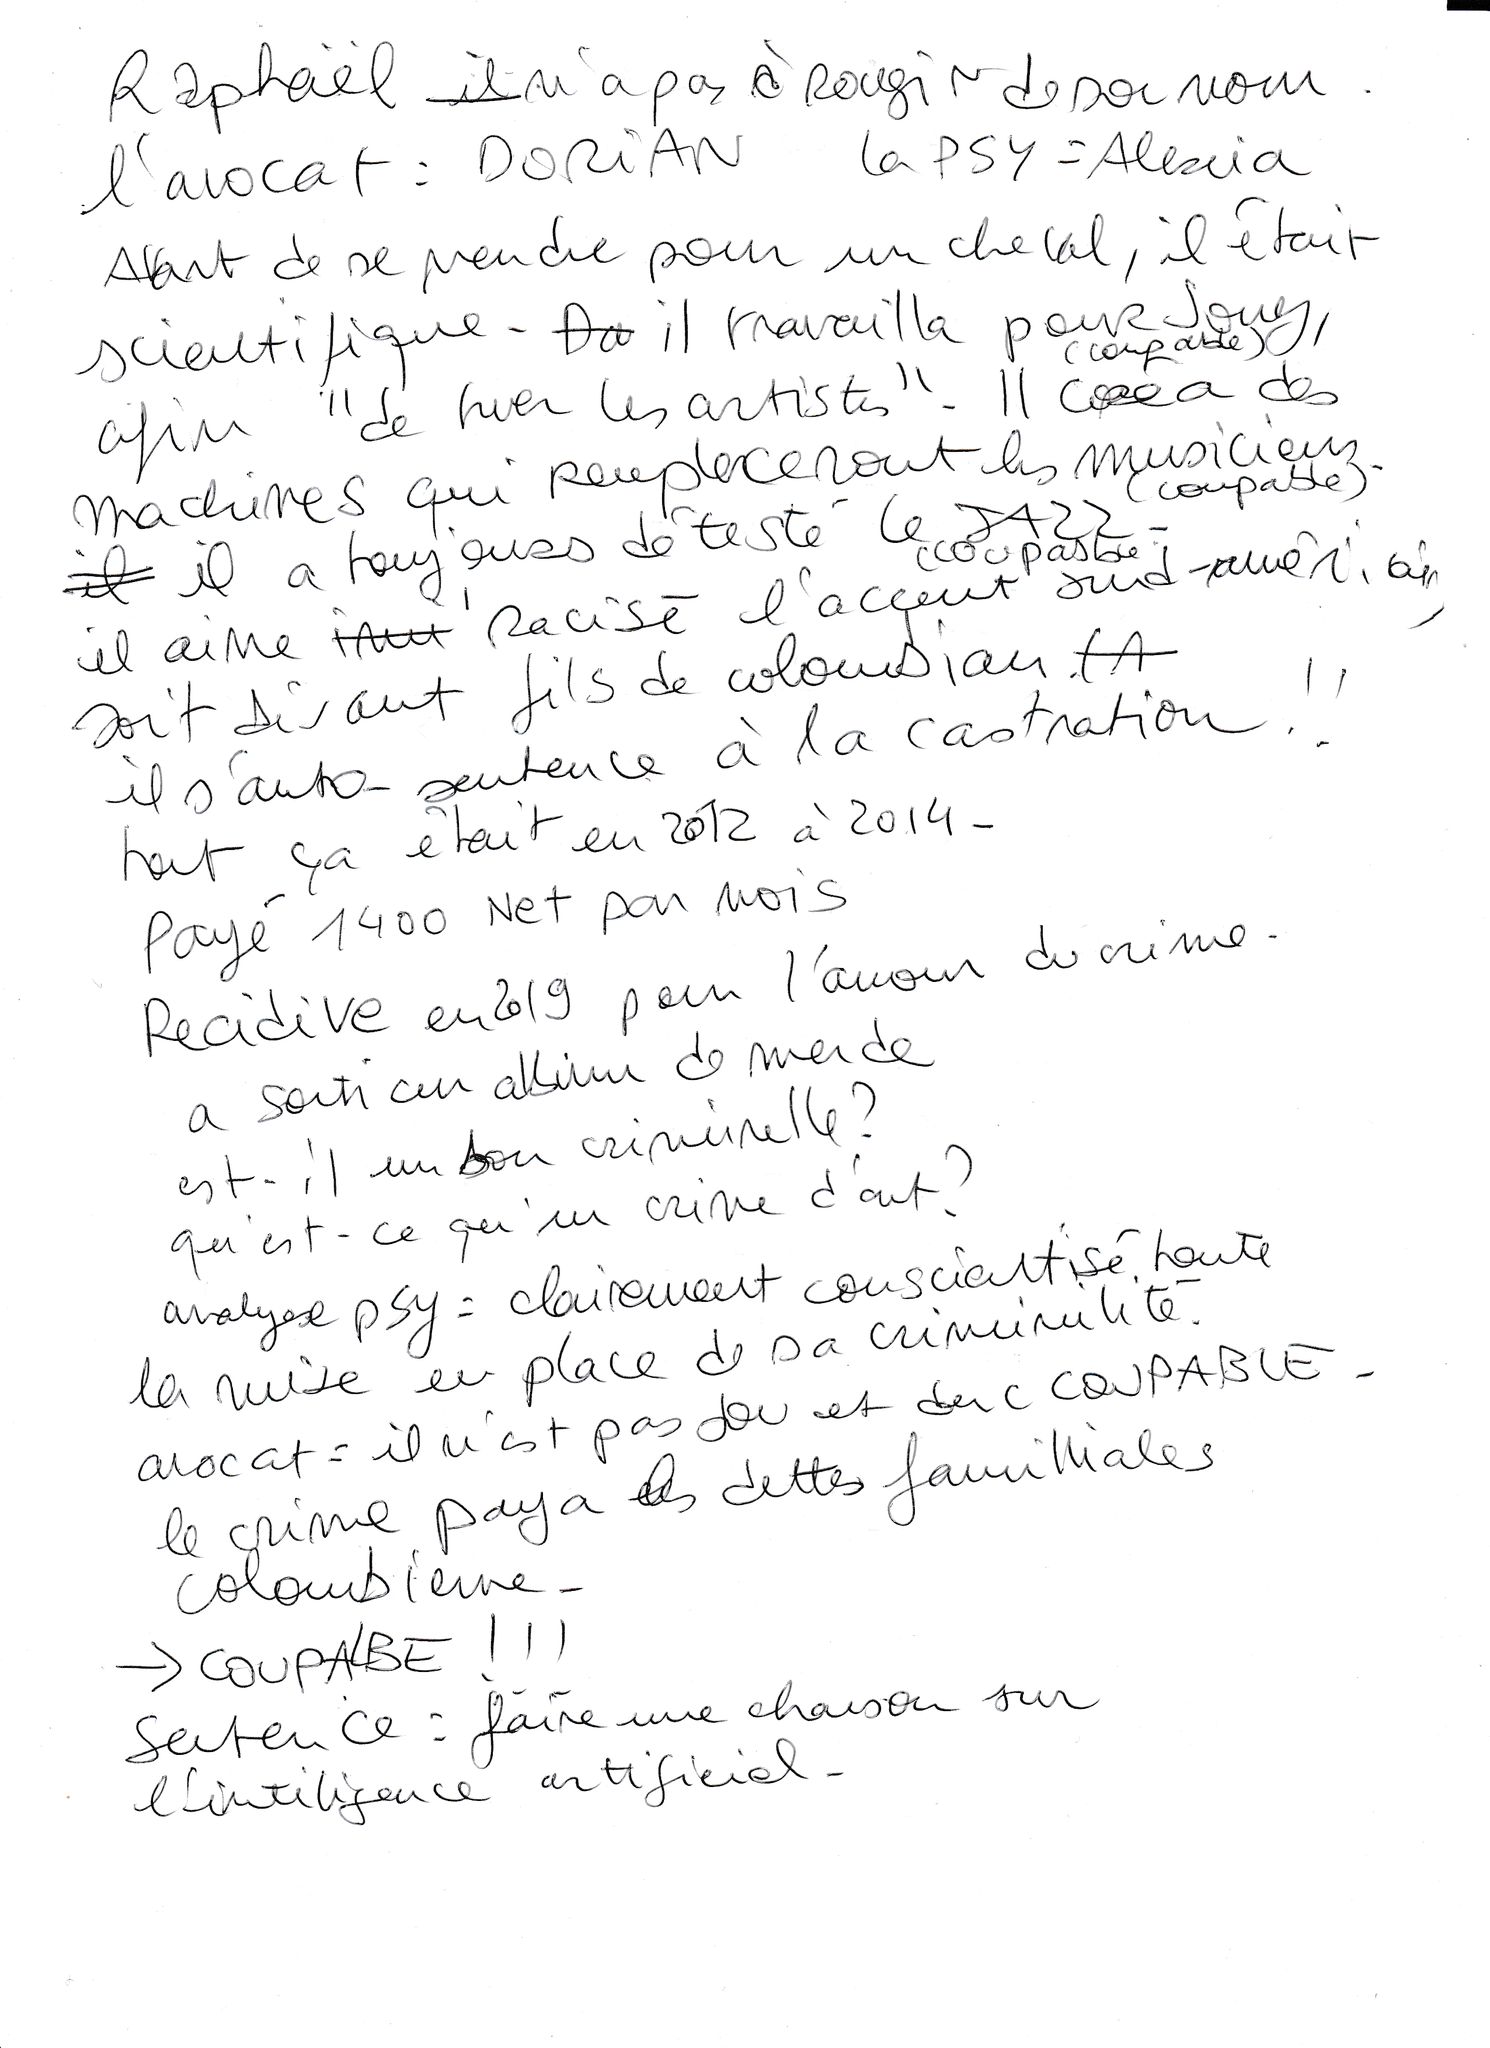 Raphaël il n'a pas à rougir de son nom.
l'avocat : DORIAN la PSY = Alexia
Avant de se prendre pour un cheval, il était
scientifique - Da il travailla pour Sony,
(coupable)
afin "de tuer les artistes" - Il créea des
machines qui remplaceront les musiciens.
(coupable)
il il a toujours détesté le JAZZ -
(coupable)
il aime racisé l'accent sud-américain,
soit disant fils de colombian (A
il s'auto-sentence à la castration !!
tout ça était en 2012 à 2014 -
Payé 1400 Net par mois
Recidive en 2019 pour l'amour du crime -
a sorti un album de merde
est-il un bon criminelle ?
qu'est-ce qu'un crime d'art ?
analyse psy = clairement conscientisé toute
la mise en place de sa criminilité.
avocat = il n'est pas fou et donc COUPABLE -
le crime paya les dettes familliales
colombienne -
→ COUPALBE !!!
Sentence = faire une chanson sur
l'intiligence artificiel -